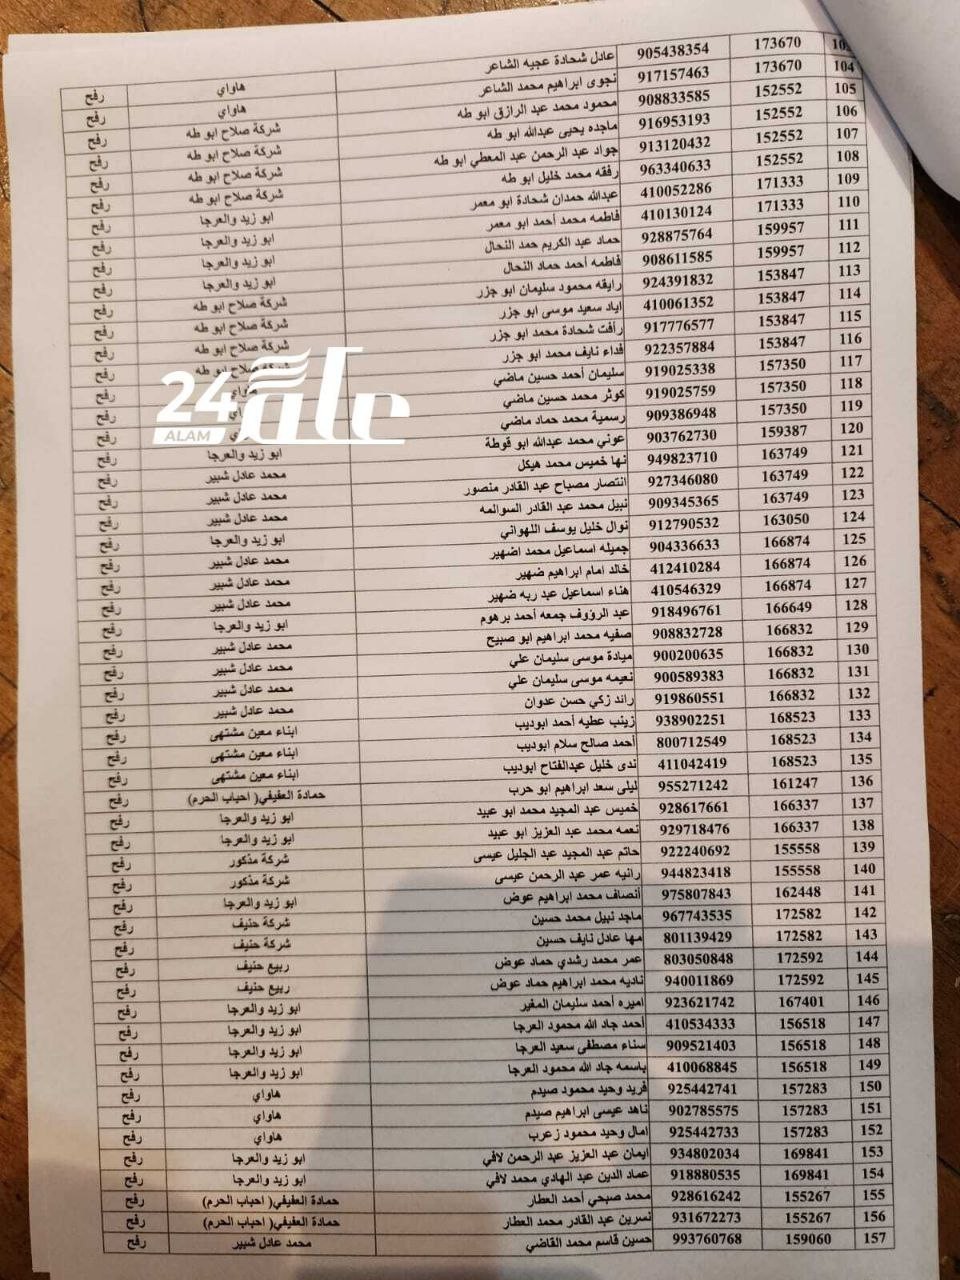 173670 905438354 عادل شحادة عجيه الشاعر هاواي رفح
104 173670 917157463 نجوى ابراهيم محمد الشاعر هاواي رفح
105 152552 908833585 محمود محمد عبد الرازق ابو طه شركة صلاح ابو طه رفح
106 152552 916953193 ماجده يحيى عبدالله ابو طه شركة صلاح ابو طه رفح
107 152552 913120432 جواد عبد الرحمن عبد المعطي ابو طه شركة صلاح ابو طه رفح
108 152552 963340633 رفقه محمد خليل ابو طه شركة صلاح ابو طه رفح
109 171333 410052286 عبدالله حمدان شحادة ابو معمر ابو زيد والعرجا رفح
110 171333 410130124 فاطمه محمد أحمد ابو معمر ابو زيد والعرجا رفح
111 159957 928875764 حماد عبد الكريم حمد النحال ابو زيد والعرجا رفح
112 159957 908611585 فاطمه أحمد حماد النحال ابو زيد والعرجا رفح
113 153847 924391832 رايقه محمود سليمان ابو جزر شركة صلاح ابو طه رفح
114 153847 410061352 اياد سعيد موسى ابو جزر شركة صلاح ابو طه رفح
115 153847 917776577 رأفت شحادة محمد ابو جزر شركة صلاح ابو طه رفح
116 153847 922357884 فداء نايف محمد ابو جزر شركة صلاح ابو طه رفح
117 157350 919025338 سليمان أحمد حسين ماضي هاواي رفح
118 157350 919025759 كوثر محمد حسين ماضي رفح
119 157350 909386948 رسمية محمد حماد ماضي رفح
120 159387 903762730 عوني محمد عبدالله ابو قوطة ابو زيد والعرجا رفح
121 163749 949823710 نها خميس محمد هيكل محمد عادل شبير رفح
122 163749 927346080 انتصار مصباح عبد القادر منصور محمد عادل شبير رفح
123 163749 909345365 نبيل محمد عبد القادر السوالمه محمد عادل شبير رفح
124 163050 912790532 نوال خليل يوسف اللهواني ابو زيد والعرجا رفح
125 166874 904336633 جميله اسماعيل محمد اضهير محمد عادل شبير رفح
126 166874 412410284 خالد امام ابراهيم ضهير محمد عادل شبير رفح
127 166874 410546329 هناء اسماعيل عبد ربه ضهير محمد عادل شبير رفح
128 166649 918496761 عبد الرؤوف جمعه أحمد برهوم ابو زيد والعرجا رفح
129 166832 908832728 صفيه محمد ابراهيم ابو صبيح محمد عادل شبير رفح
130 166832 900200635 ميادة موسى سليمان علي محمد عادل شبير رفح
131 166832 900589383 نعيمه موسى سليمان علي محمد عادل شبير رفح
132 166832 919860551 رائد زكي حسن عدوان محمد عادل شبير رفح
133 168523 938902251 زينب عطيه أحمد ابوديب ابناء معين مشتهى رفح
134 168523 800712549 أحمد صالح سلام ابوديب ابناء معين مشتهى رفح
135 168523 411042419 ندى خليل عبدالفتاح ابوديب ابناء معين مشتهى رفح
136 161247 955271242 ليلى سعد ابراهيم ابو حرب حمادة العفيفي( احباب الحرم) رفح
137 166337 928617661 خميس عبد المجيد محمد ابو عبيد ابو زيد والعرجا رفح
138 166337 929718476 نعمه محمد عبد العزيز ابو عبيد ابو زيد والعرجا رفح
139 155558 922240692 حاتم عبد المجيد عبد الجليل عيسى شركة مذكور رفح
140 155558 944823418 رانيه عمر عبد الرحمن عيسى شركة مذكور رفح
141 162448 975807843 أنصاف محمد ابراهيم عوض ابو زيد والعرجا رفح
142 172582 967743535 ماجد نبيل محمد حسين شركة حنيف رفح
143 172582 801139429 مها عادل نايف حسين شركة حنيف رفح
144 172592 803050848 عمر محمد رشدي حماد عوض ربيع حنيف رفح
145 172592 940011869 ناديه محمد ابراهيم حماد عوض ربيع حنيف رفح
146 167401 923621742 اميره أحمد سليمان المغير ابو زيد والعرجا رفح
147 156518 410534333 أحمد جاد الله محمود العرجا ابو زيد والعرجا رفح
148 156518 909521403 سناء مصطفى سعيد العرجا ابو زيد والعرجا رفح
149 156518 410068845 باسمه جاد الله محمود العرجا ابو زيد والعرجا رفح
150 157283 925442741 فريد وحيد محمود صيدم هاواي رفح
151 157283 902785575 ناهد عيسى ابراهيم صيدم هاواي رفح
152 157283 925442733 امال وحيد محمود زعرب هاواي رفح
153 169841 934802034 ايمان عبد العزيز عبد الرحمن لافي ابو زيد والعرجا رفح
154 169841 918880535 عماد الدين عبد الهادي محمد لافي ابو زيد والعرجا رفح
155 155267 928616242 محمد صبحي أحمد العطار حمادة العفيفي( احباب الحرم) رفح
156 155267 931672273 نسرين عبد القادر محمد العطار حمادة العفيفي( احباب الحرم) رفح
157 159060 993760768 حسين قاسم محمد القاضي محمد عادل شبير رفح
24
ALAM